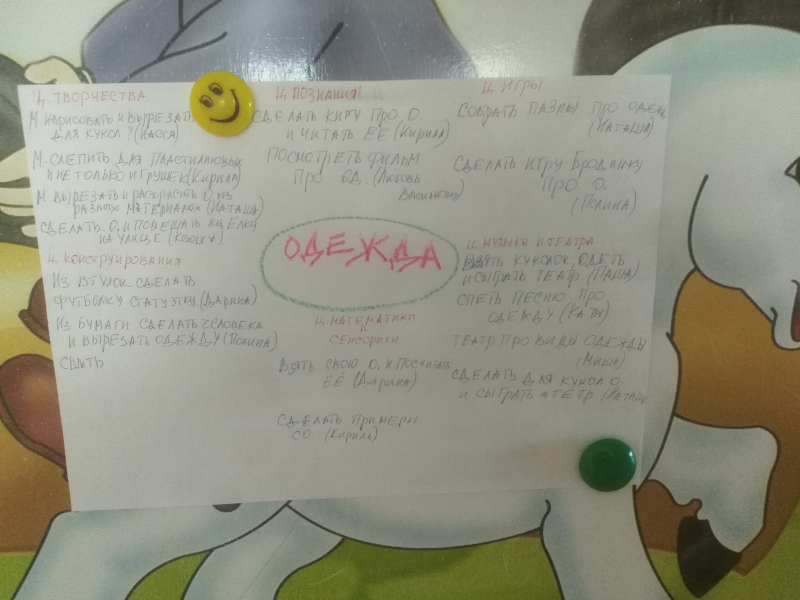 Ц. ТВОРЧЕСТВА
М НАРИСОВАТЬ И ВЫРЕЗАТЬ
ДЛЯ КУКОЛ
М. СЛЕПИТЬ ДЛЯ ПЛАСТИЛИНОВЫХ
И НЕ ТОЛЬКО ИГРУШЕК (Кирилл)
М ВЫРЕЗАТЬ И РАСКРАСИТЬ О. ИЗ
РАЗНЫХ МАТЕРИАЛОВ (НАТАША)
СДЕЛАТЬ О. И ПОВЕШАТЬ НА ЕЛКУ
НА УЛИЦЕ (Ксюша)
Ц. КОНСТРУИРОВАНИЯ
ИЗ ВТУЛОК СДЕЛАТЬ
ФУТБОЛКУ, СТАТУЭТКУ (ДАРИНА)
ИЗ БУМАГИ СДЕЛАТЬ ЧЕЛОВЕКА
И ВЫРЕЗАТЬ ОДЕЖДУ (ПОЛИНА)
СШИТЬ
Ц. ПОЗНАНИЯ
СДЕЛАТЬ КНИГУ ПРО О.
И ЧИТАТЬ ЕЁ (Кирилл)
ПОСМОТРЕТЬ ФИЛЬМ
ПРО ОД. (Любовь
ОДЕЖДА
Ц. МАТЕМАТИКИ
И
СЕНСОРИКИ
ВЗЯТЬ СВОЮ О. И ПОСЧИТАТЬ
ЕЁ (ДАРИНА)
СДЕЛАТЬ ПРИМЕРЫ
С О. (Кирилл)
Ц. ИГРЫ
СОБРАТЬ ПАЗЛЫ ПРО ОДЕЖД
(НАТАША)
СДЕЛАТЬ ИГРУ БРОДИЛКУ
ПРО О.
(ПОЛИНА)
Ц. МУЗЫКИ И ТЕАТРА
ВЗЯТЬ КУКОЛОК, ОДЕТЬ
И СЫГРАТЬ ТЕАТР
СПЕТЬ ПЕСНЮ ПРО
ОДЕЖДУ (КАТЯ)
ТЕАТР ПРО ВИДЫ ОДЕЖДЫ
(МИША)
СДЕЛАТЬ ДЛЯ КУКОЛ О.
И СЫГРАТЬ ТЕТР (НАТАША